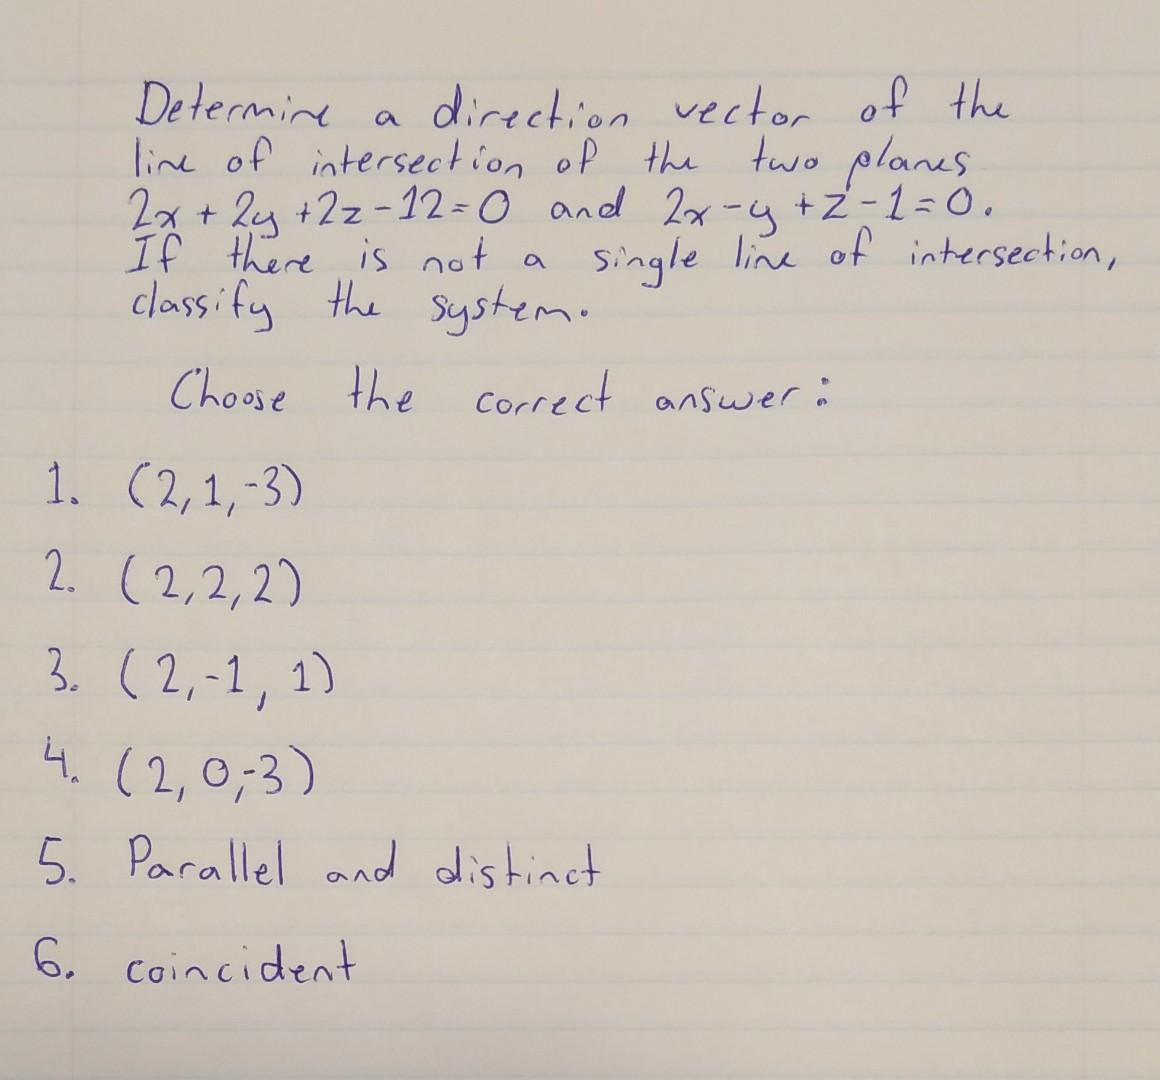 Determine a direction vector of the
line of intersection of the two planes
2x + 2y +2z -12=0 and 2x-y +z-1=0.
If there is not a single line of intersection,
classify the system.
Choose the correct answer:
1. (2,1,-3)
2. (2,2,2)
3. (2,-1, 1)
4. (2, 0,-3)
5. Parallel and distinct
6. coincident